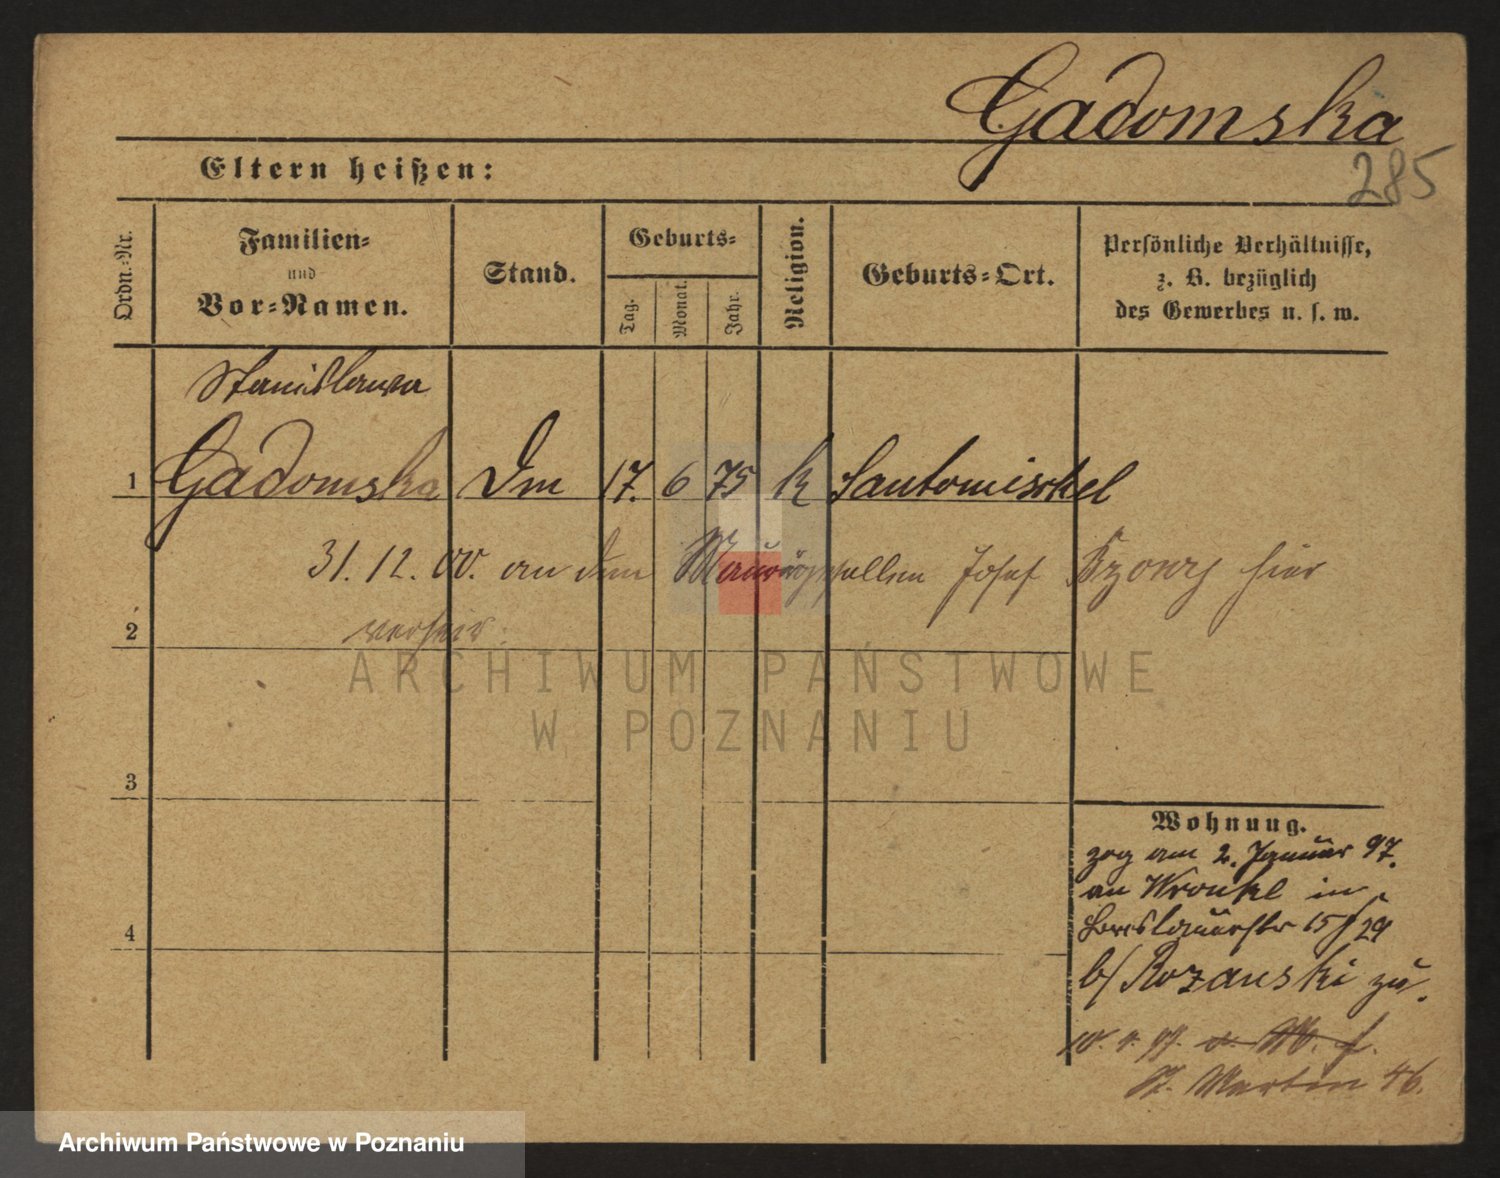 Gadomska
285
Eltern heißen:
Ordn.-Nr.
Familien-
und
Vor-Namen.
Stand.
Geburts-
Tag.
Monat.
Jahr.
Religion.
Geburts-Ort.
Persönliche Verhältnisse,
z. B. bezüglich
des Gewerbes u. s. w.
Stanislawa
1 Gadomska Dm 17. 6 75 k Santomischel
31. 12. 00. an den Maurergesellen Josef hier
2 verheir.
ARCHIWUM PAŃSTWOWE
W POZNANIU
3
Wohnung.
zog am 2. Januar 97.
an Wronke in
Breslauerstr 15/29
4
b/ Rozanski zu.
10. 4. 97.
St. Martin 46.
Archiwum Państwowe w Poznaniu